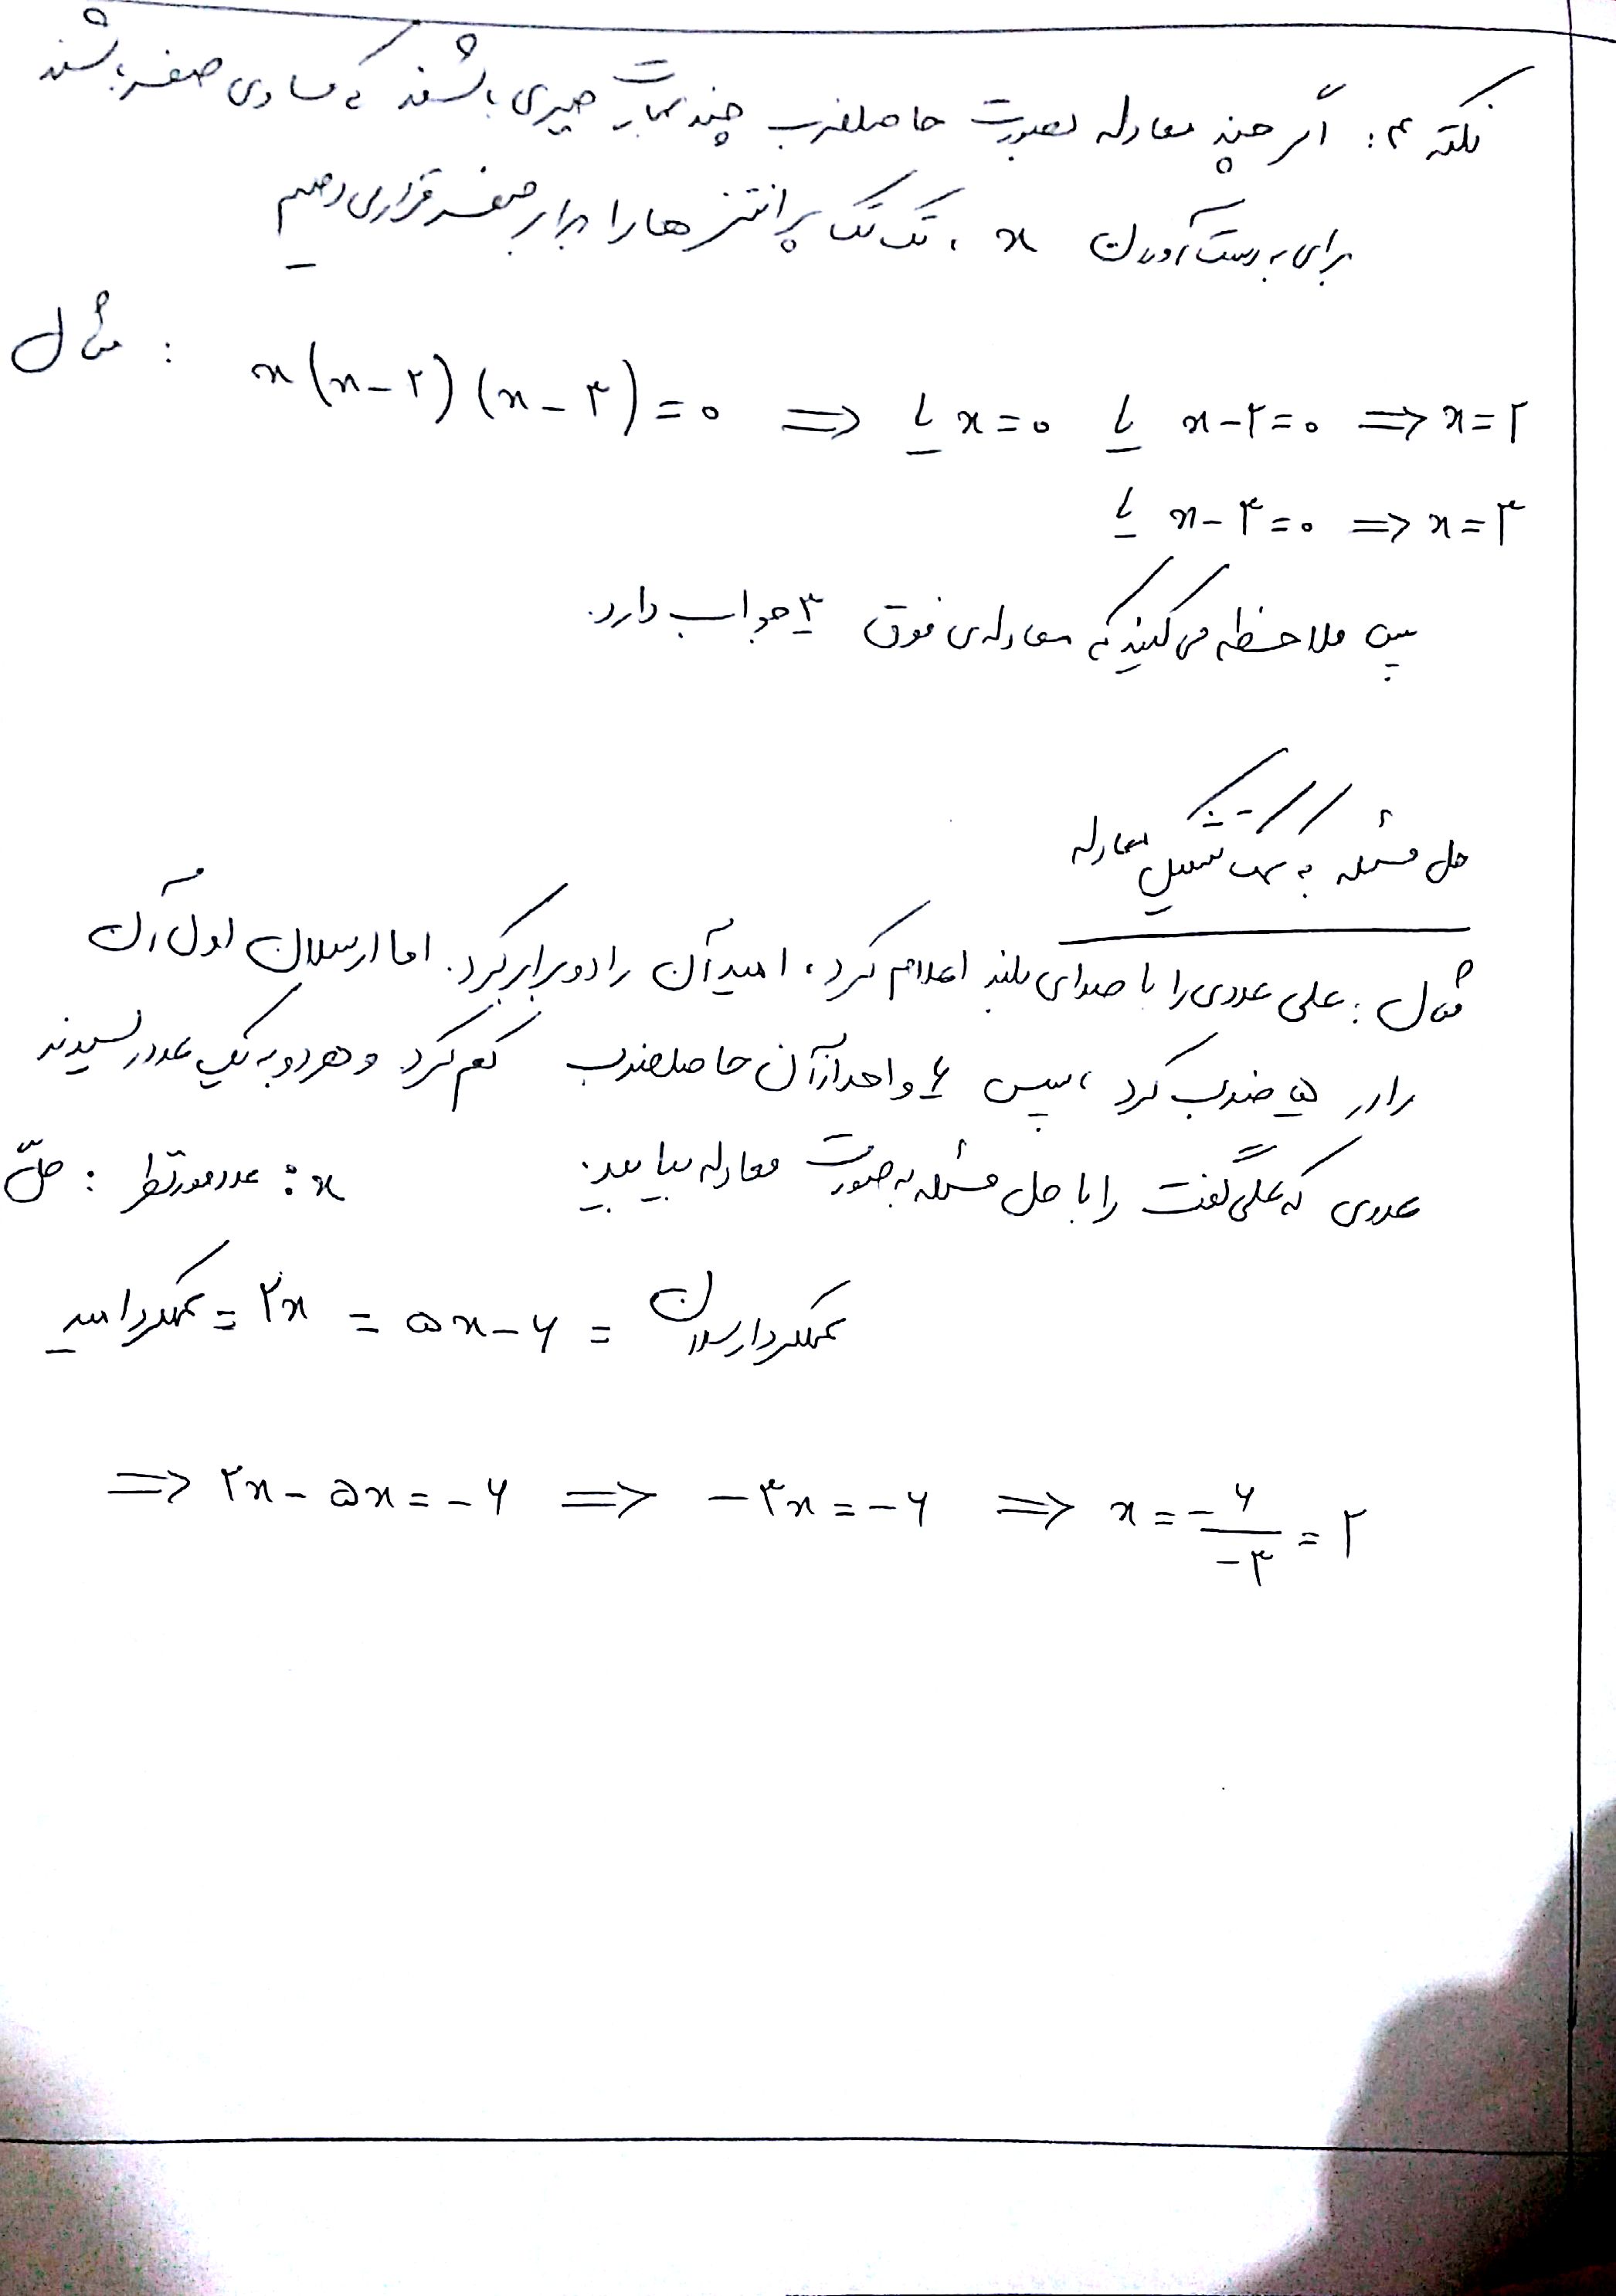 نکته ۴: اگر چند معادله بصورت حاصلضرب چند عبارت جبری باشند که مساوی صفر باشند
برای به دست آوردن x ، تک تک پرانتزها را برابر صفر قرار می دهیم
مثال : x(x-۲)(x-۳)=۰ => یا x=۰ یا x-۲=۰ => x=۲
یا x-۳=۰ => x=۳
پس ملاحظه می کنید که معادله ی فوق ۳ جواب دارد.
حل مسئله به کمک تشکیل معادله
مثال: علی عددی را با صدای بلند اعلام کرد، امید آن را دو برابر کرد. اما ارسلان اول آن
را در ۵ ضرب کرد، سپس ۶ واحد از آن حاصلضرب کم کرد و هر دو به یک عدد رسیدند
عددی که علی گفت را با حل مسئله به صورت معادله بیابید. حلّ : عدد مورد نظر : x
عملکرد امید = ۲x = ۵x-۶ = عملکرد ارسلان
=> ۲x-۵x=-۶ => -۳x=-۶ => x=-۶/-۳=۲